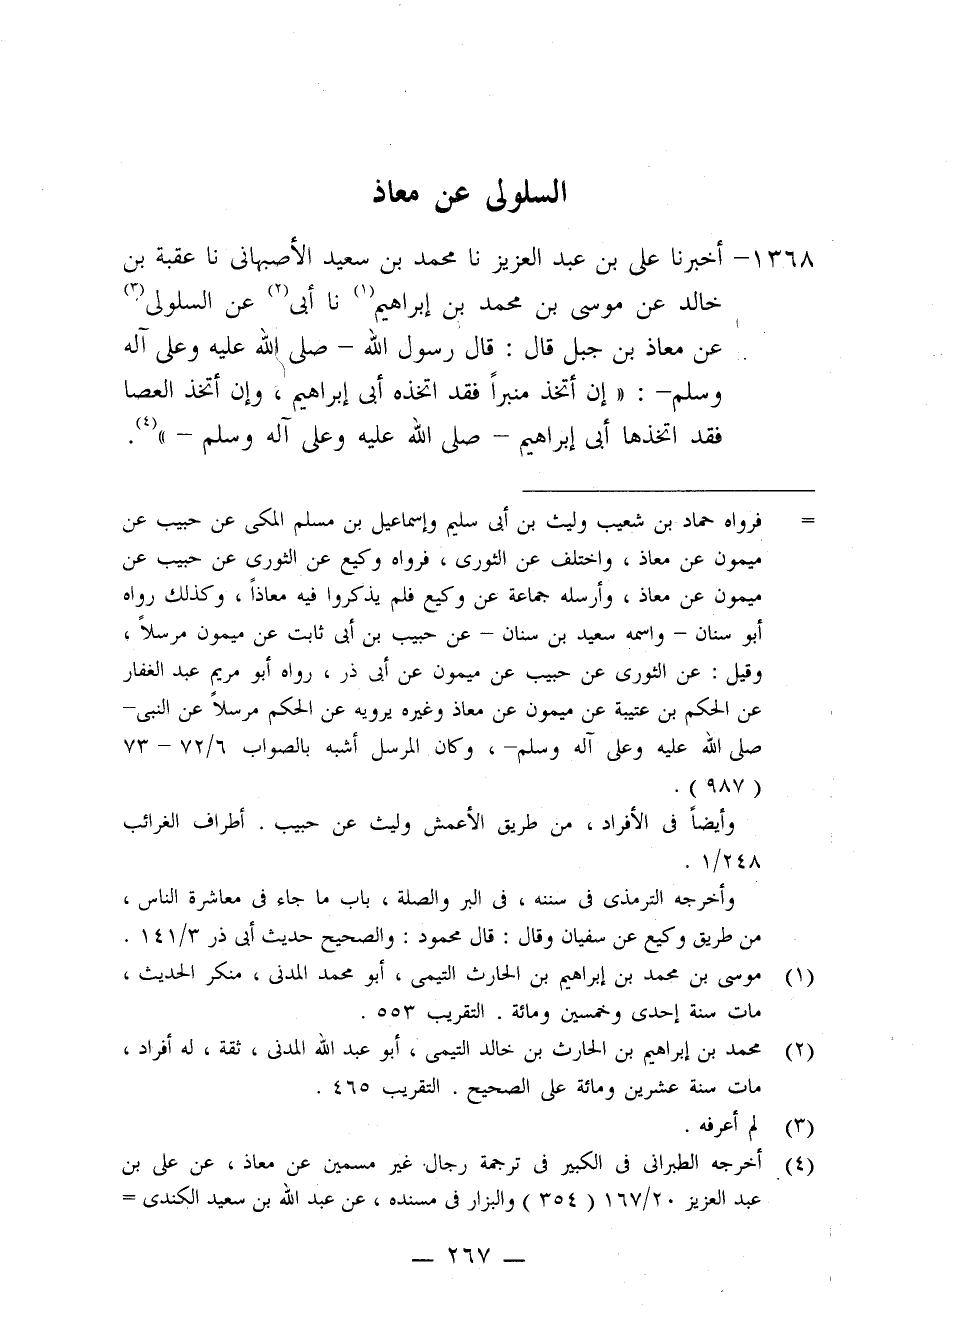 السلولى عن معاذ
١٣٦٨– أخبرنا على بن عبد العزيز نا محمد بن سعيد الأصبهانى نا عقبة بن
خالد عن موسى بن محمد بن إبراهيم(١) نا أبى(٢) عن السلولى(٣)
عن معاذ بن جبل قال : قال رسول الله – صلى الله عليه وعلى آله
وسلم– : « إن أتخذ منبراً فقد اتخذه أبى إبراهيم ، وإن أتخذ العصا
فقد اتخذها أبى إبراهيم – صلى الله عليه وعلى آله وسلم – »(٤).
= فرواه حماد بن شعيب وليث بن أبى سليم وإسماعيل بن مسلم المكى عن حبيب عن
ميمون عن معاذ ، واختلف عن الثورى ، فرواه وكيع عن الثورى عن حبيب عن
ميمون عن معاذ ، وأرسله جماعة عن وكيع فلم يذكروا فيه معاذاً ، وكذلك رواه
أبو سنان – واسمه سعيد بن سنان – عن حبيب بن أبى ثابت عن ميمون مرسلاً ،
وقيل : عن الثورى عن حبيب عن ميمون عن أبى ذر ، رواه أبو مريم عبد الغفار
عن الحكم بن عتيبة عن ميمون عن معاذ وغيره يرويه عن الحكم مرسلاً عن النبى–
صلى الله عليه وعلى آله وسلم– ، وكان المرسل أشبه بالصواب ٧٢/٦ – ٧٣
( ٩٨٧ ) .
وأيضاً فى الأفراد ، من طريق الأعمش وليث عن حبيب . أطراف الغرائب
١/٢٤٨ .
وأخرجه الترمذى فى سننه ، فى البر والصلة ، باب ما جاء فى معاشرة الناس ،
من طريق وكيع عن سفيان وقال : قال محمود : والصحيح حديث أبى ذر ١٤١/٣ .
(١) موسى بن محمد بن إبراهيم بن الحارث التيمى ، أبو محمد المدنى ، منكر الحديث ،
مات سنة إحدى وخمسين ومائة . التقريب ٥٥٣ .
(٢) محمد بن إبراهيم بن الحارث بن خالد التيمى ، أبو عبد الله المدنى ، ثقة ، له أفراد ،
مات سنة عشرين ومائة على الصحيح . التقريب ٤٦٥ .
(٣) لم أعرفه .
(٤) أخرجه الطبرانى فى الكبير فى ترجمة رجال غير مسمين عن معاذ ، عن على بن
عبد العزيز ١٦٧/٢٠ ( ٣٥٤ ) والبزار فى مسنده ، عن عبد الله بن سعيد الكندى =
— ٢٦٧ —